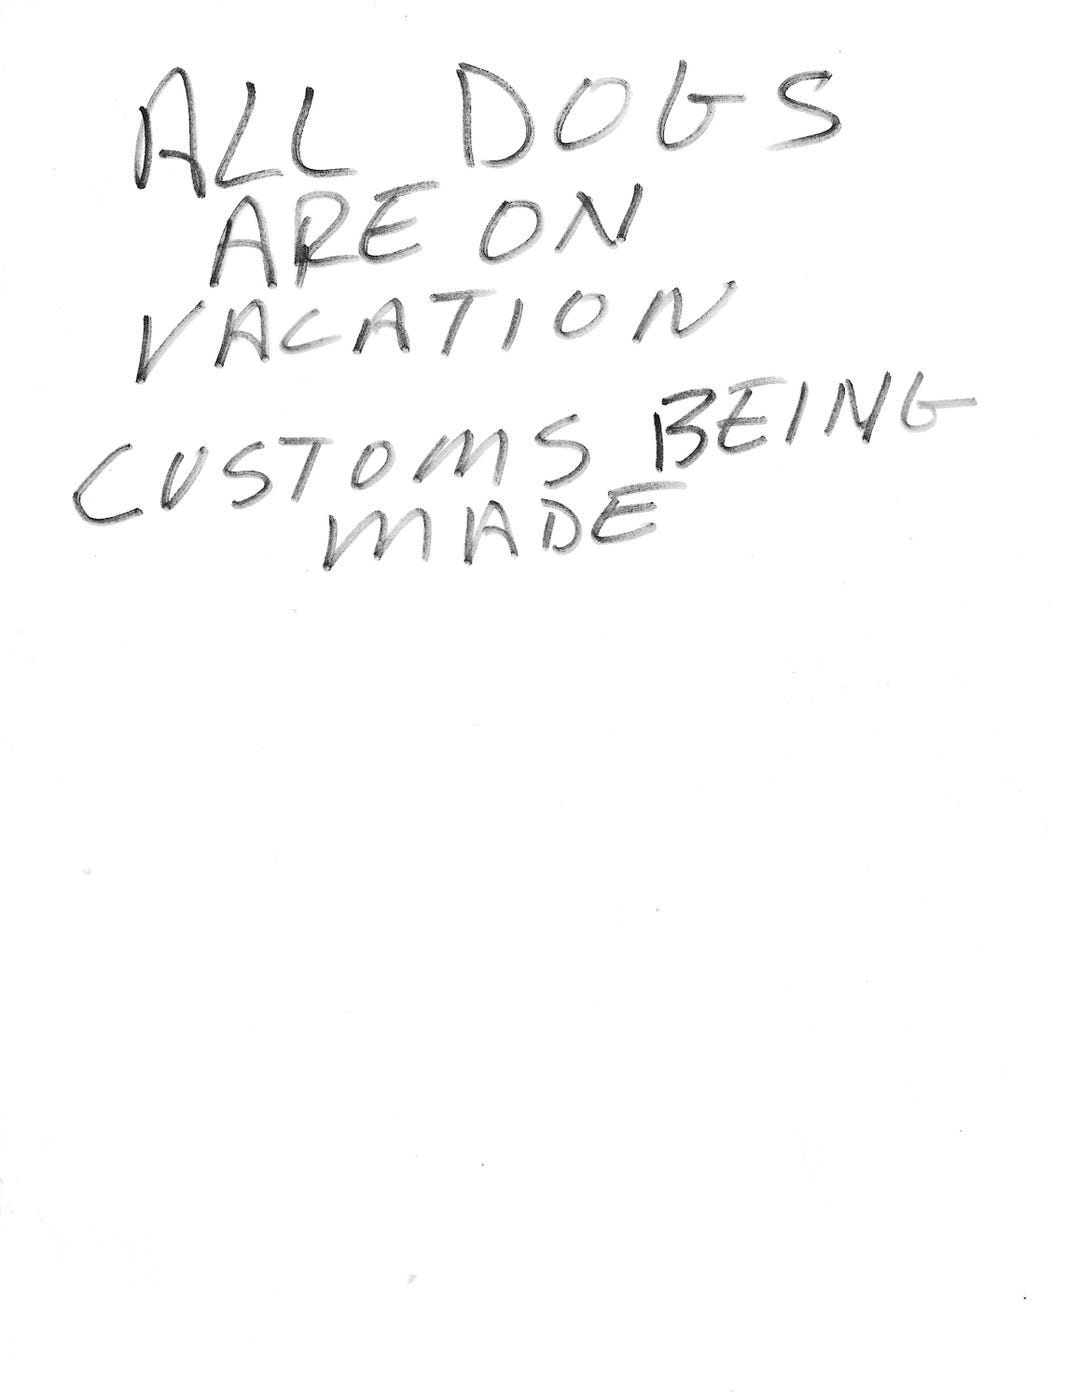 ALL DOGS
ARE ON
VACATION
CUSTOMS BEING
MADE